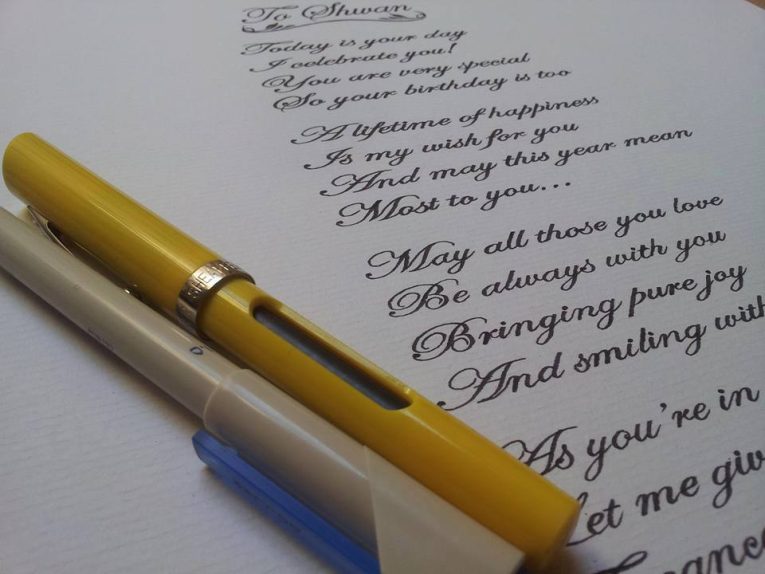 To Shwan
Today is your day
I celebrate you!
You are very special
So your birthday is too
A lifetime of happiness
Is my wish for you
And may this year mean
Most to you...
May all those you love
Be always with you
Bringing pure joy
And smiling with
As you're in
Let me giv